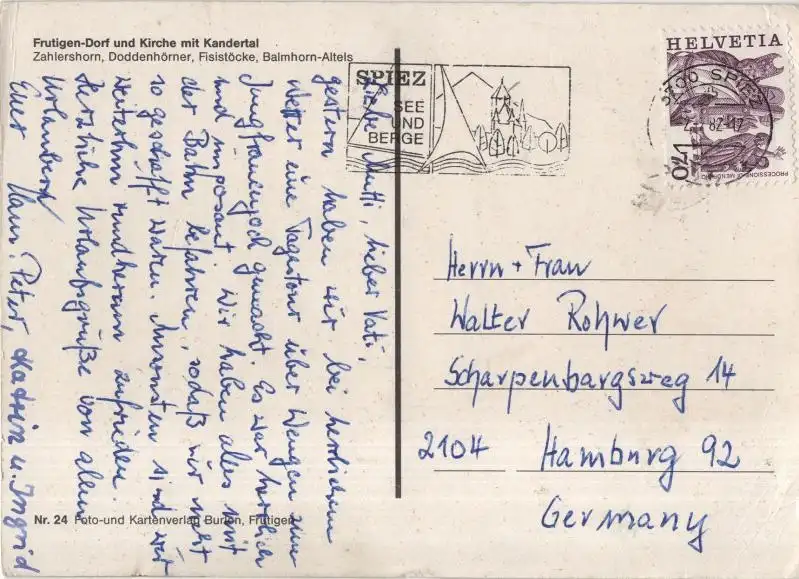 Frutigen-Dorf und Kirche mit Kandertal
Zahlershorn, Doddenhörner, Fisistöcke, Balmhorn-Altels
Liebe Mutti, lieber Vati,
gestern haben wir bei herrlichem
Wetter eine Tagestour über Wengen zum
Jungfraujoch gemacht. Es war herrlich
und imposant. Wir haben alles mit
der Bahn befahren, sodaß wir nicht
so geschafft waren. Ansonsten sind wir
weiterhin rundherum zufrieden.
Herzliche Urlaubsgrüße von allen
Urlaubern
Euer Hans-Peter, Katrin u. Ingrid
Nr. 24 Foto-und Kartenverlag Burlon, Frutigen
SPIEZ
SEE
UND
BERGE
3700 SPIEZ
HELVETIA
170
Herrn + Frau
Walter Rohwer
Scharpenbargsweg 14
2104 Hamburg 92
Germany